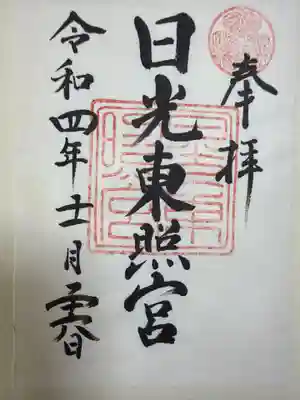 奉拝
日光東照宮
令和四年十一月二十八日